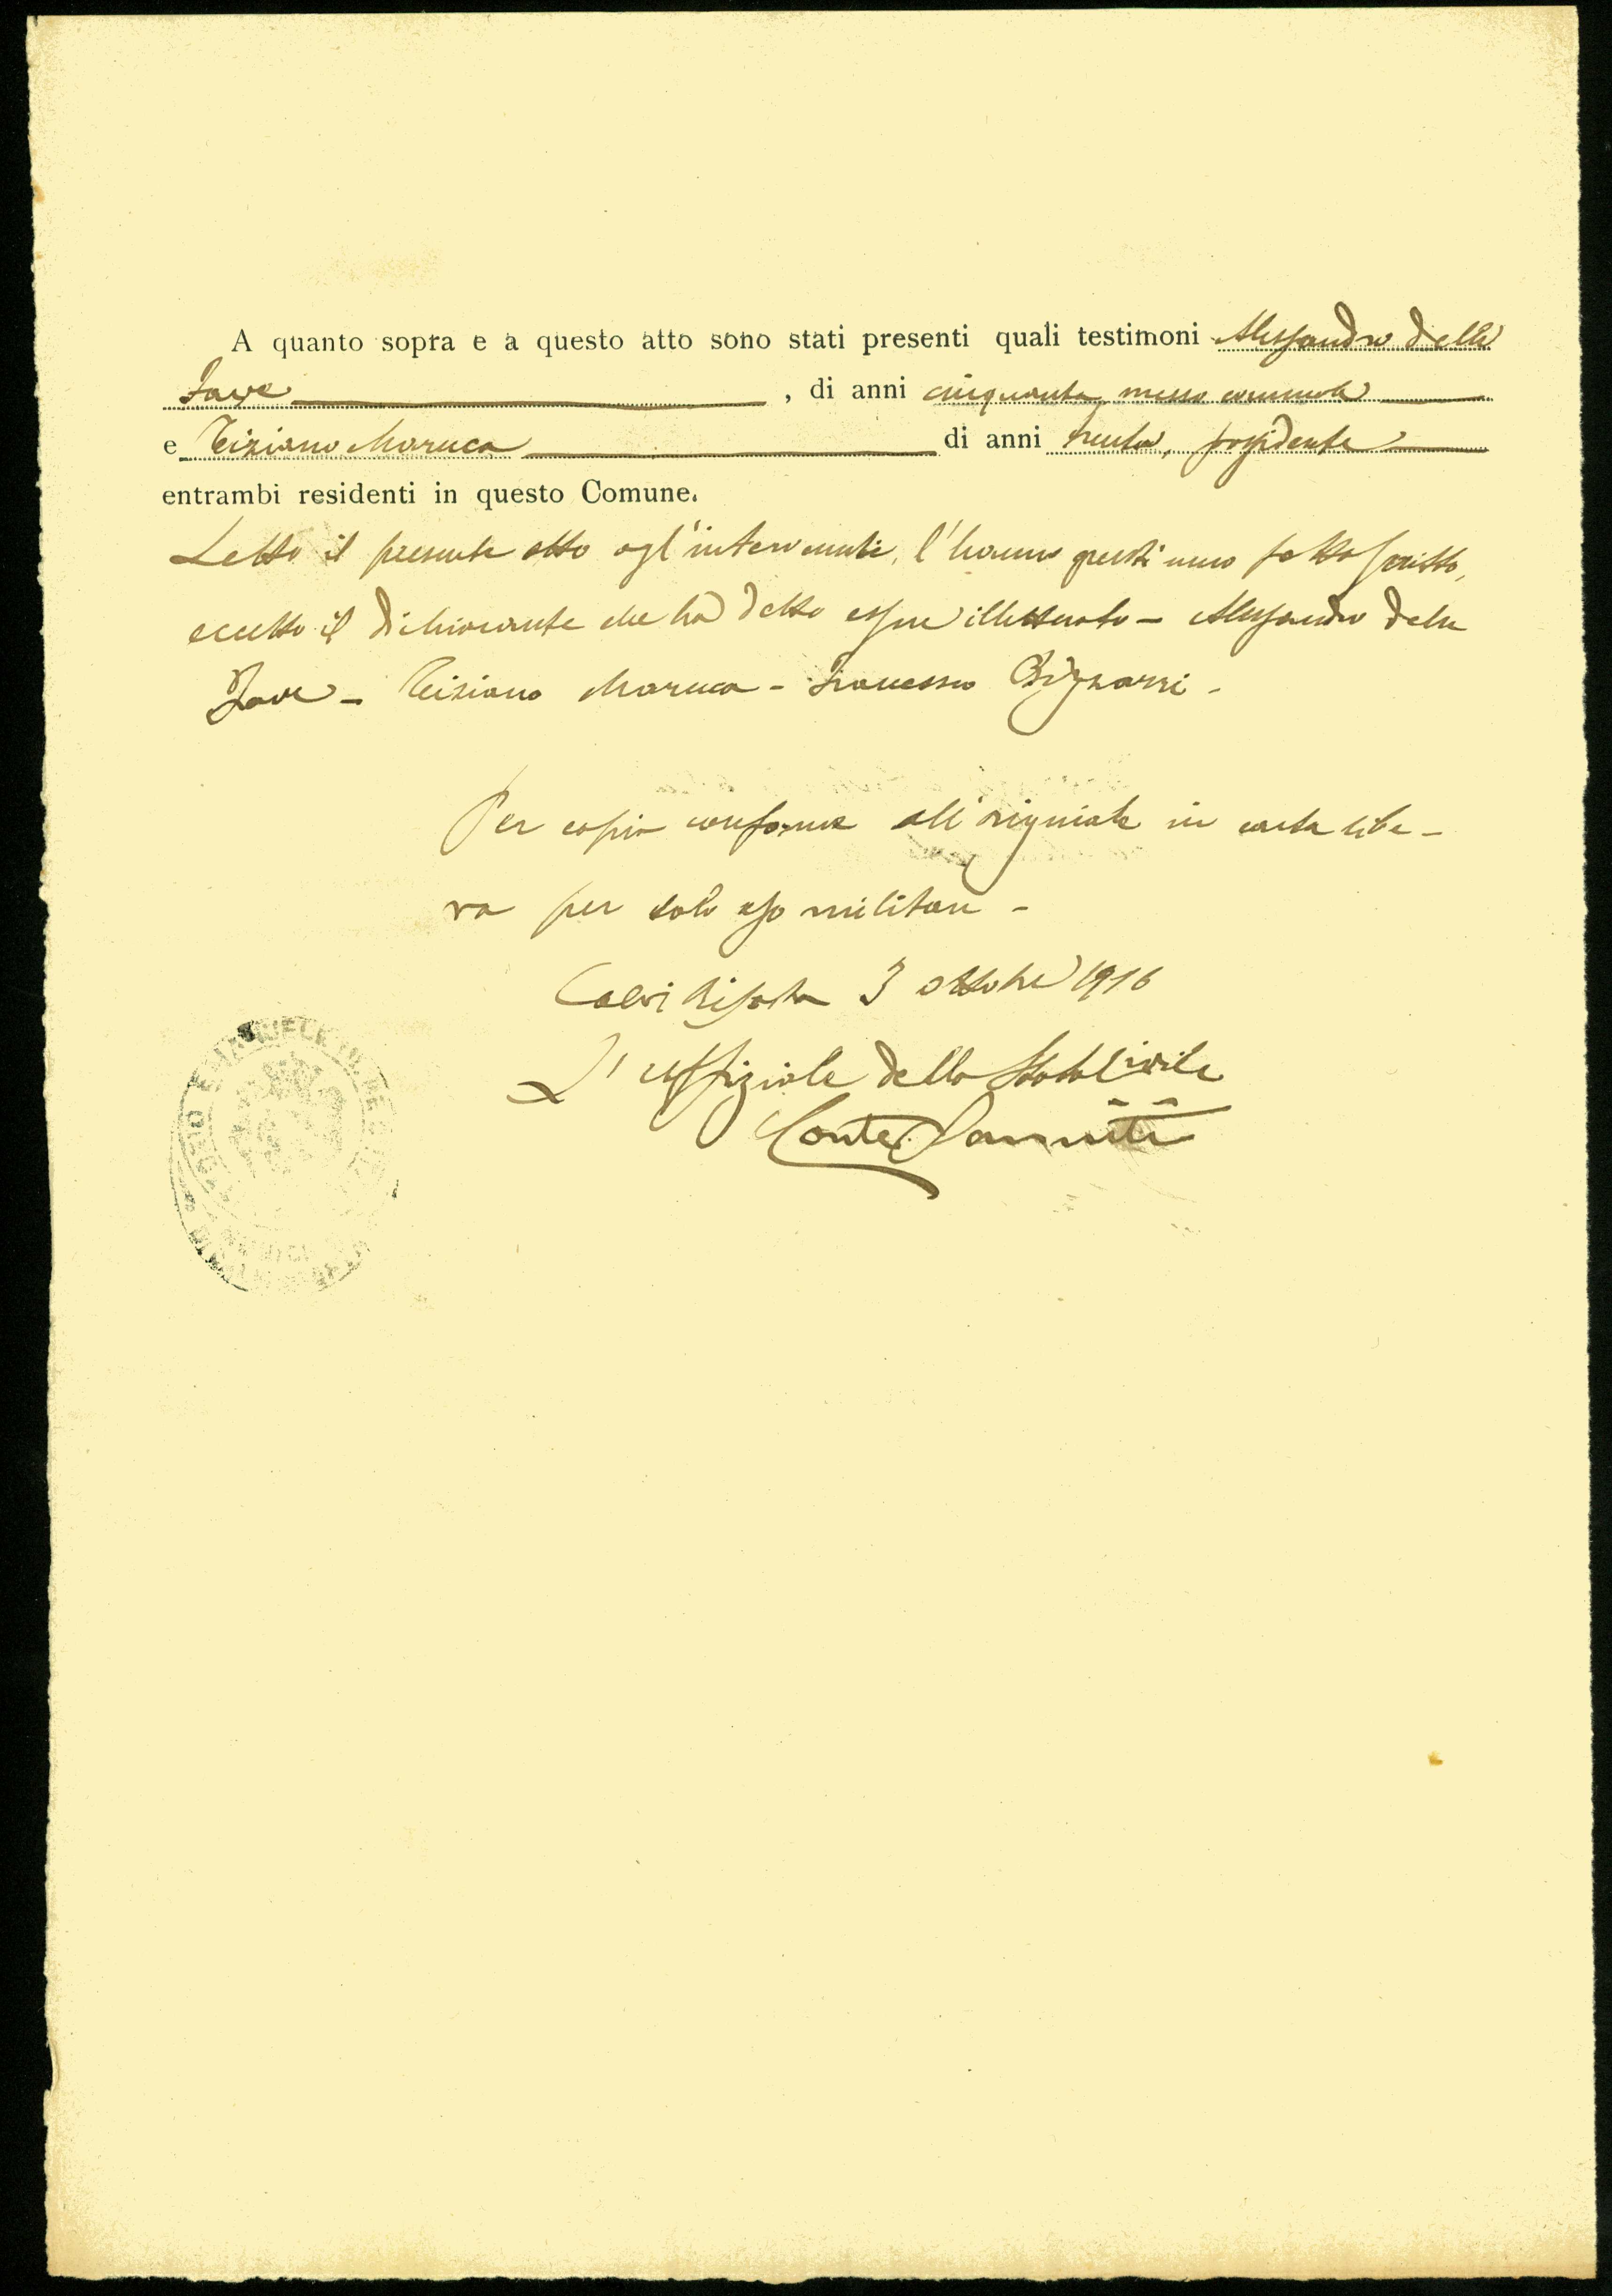 A quanto sopra e a questo atto sono stati presenti quali testimoni Alessandro delle
Fave, di anni cinquanta, messo comunale
e Tiziano Maruca di anni trenta, possidente
entrambi residenti in questo Comune.
Letto il presente atto agl'intervenuti, l'hanno questi meco sottoscritto,
eccetto il dichiarante che ha detto essere illetterato - Alessandro delle
Fave - Tiziano Maruca - Francesco
Per copia conforme all'originale in carta libe-
ra per solo uso militare -
Calvi Risorta 3 ottobre 1916
L'uffiziale dello Stato Civile
Conte